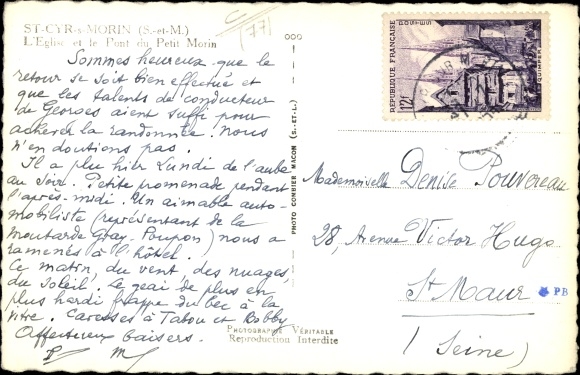 ST-CYR-s MORIN (S.-et-M.)
L'Eglise et le Pont du Petit Morin
(77)
Sommes heureux que le
retour se soit bien effectué et
que les talents de conducteur
de Georges aient suffi pour
achever la randonnée. Nous
n'en doutions pas.
Il a plu hier Lundi de l'aube
au soir. Petite promenade pendant
l'après-midi. Un aimable auto-
mobiliste (représentant de la
moutarde Gray-Poupon) nous a
ramenés à l'hôtel.
Ce matin, du vent, des nuages,
du soleil. Le geai de plus en
plus hardi frappe du bec à la
vitre. Caresses à Tabou et Bobby
Affectueux baisers.
PHOTO COMBIER MACON (S.-ET-L.)
PHOTOGRAPHIE VÉRITABLE
Reproduction Interdite
RÉPUBLIQUE FRANÇAISE
POSTES
12f
Mademoiselle Denise Pouvereau
28, Avenue Victor Hugo
St Maur
PB
(Seine)